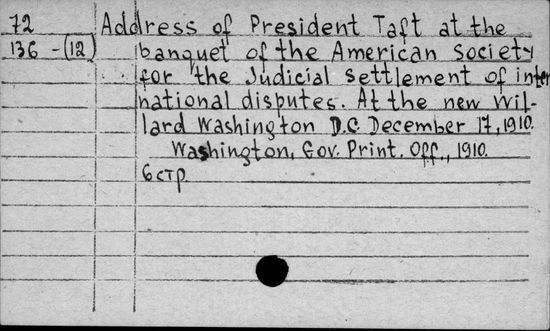 72 Address of President Taft at the
136-(12) banquet of the American Society
for the Judicial Settlement of inter
national disputes. At the new Wil-
lard Washington D.C. December 17, 1910.
Washington, Gov. Print. Off., 1910.
6 стр.